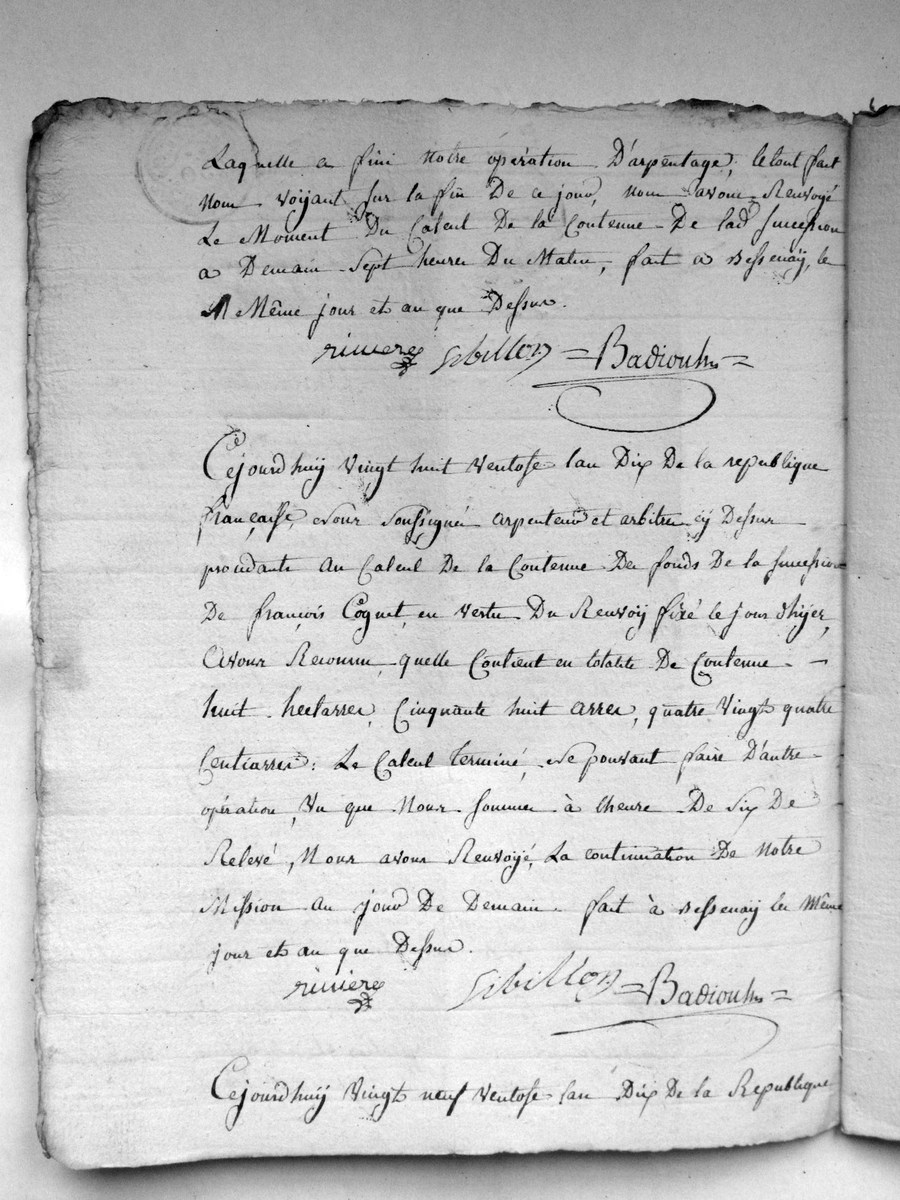 Laquelle a fini notre opération D'arpentage; le tout fait
nous voyant sur la fin De ce jour, nous avons Renvoyé
Le Moment Du Calcul De la Contenue De lad succession
a Demain Sept heures Du Matin, fait a Bessenay, le
Même jour et an que Dessus.
riviere Sibillon = Badiouh =
Cejourdhuÿ Vingt huit Ventose lan Dix De la republique
françaisse Nous Soussignés arpenteur et arbitres cÿ Dessus
procédants au Calcul De la Contenue Des fonds De la succession
De françois Cognet, en vertu Du Renvoÿ fixé le jour d'hÿer,
Avons Reconnu quelle Contient en totalité De Contenue -
huit hectarres, Cinquante huit arres, quatre Vingt quatre
Centiarres: Le Calcul terminé, Ne pouvant faire D'autre
opération, Vu que Nous sommes à lheure De Six De
Relevé, Nous avons Renvoÿé, La continuation De Notre
Mission au jour De Demain. fait à Bessenay les Même
jour et an que Dessus.
riviere Sibillon = Badiouh =
Cejourdhuÿ Vingt neuf Ventose lan Dix De la Republique